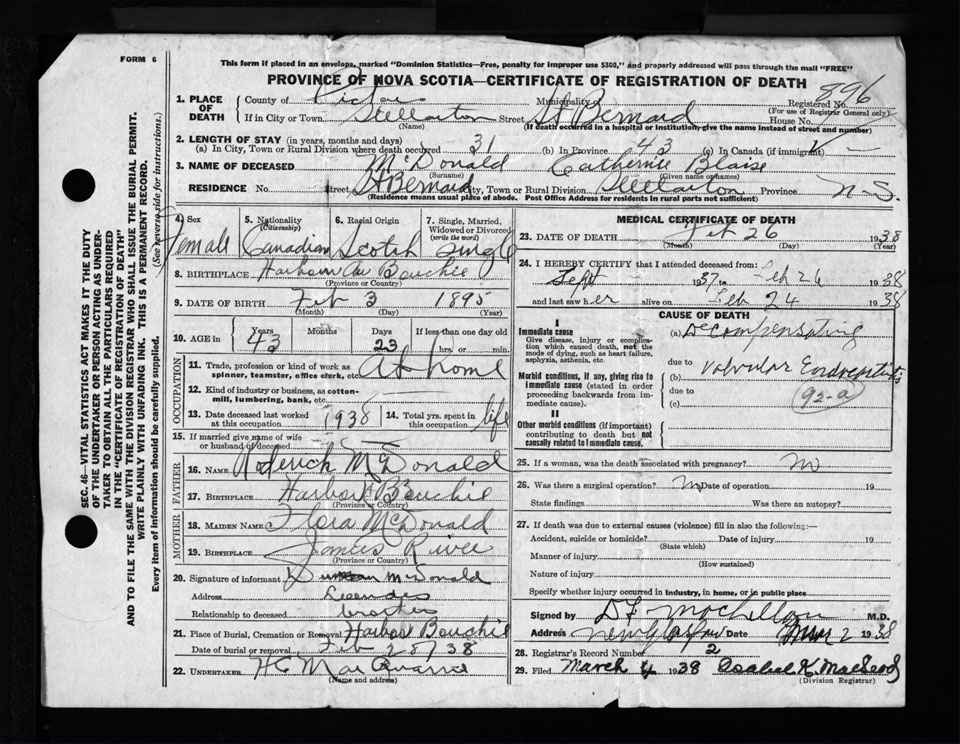 FORM 6
This form if placed in an envelope, marked "Dominion Statistics—Free, penalty for improper use $300," and properly addressed will pass through the mail "FREE"
PROVINCE OF NOVA SCOTIA—CERTIFICATE OF REGISTRATION OF DEATH
SEC. 46—VITAL STATISTICS ACT MAKES IT THE DUTY
OF THE UNDERTAKER OR PERSON ACTING AS UNDER-
TAKER TO OBTAIN ALL THE PARTICULARS REQUIRED
IN THE "CERTIFICATE OF REGISTRATION OF DEATH"
AND TO FILE THE SAME WITH THE DIVISION REGISTRAR WHO SHALL ISSUE THE BURIAL PERMIT.
WRITE PLAINLY WITH UNFADING INK. THIS IS A PERMANENT RECORD.
Every item of information should be carefully supplied. (See reverse side for instructions.)
1. PLACE OF DEATH County of Pictou Municipality of Registered No. 896
(For use of Registrar General only)
If in City or Town Stellarton Street St Bernard House No.
(Name) (If death occurred in a hospital or institution, give the name instead of street and number)
2. LENGTH OF STAY (in years, months and days)
(a) In City, Town or Rural Division where death occurred 31 (b) In Province 43 (c) In Canada (if immigrant)
3. NAME OF DECEASED McDonald Catherine Blaise
(Surname) (Given name or names)
RESIDENCE No. Street St Bernard City, Town or Rural Division Stellarton Province N.S.
(Residence means usual place of abode. Post Office Address for residents in rural parts not sufficient)
4. Sex Female
5. Nationality (Citizenship) Canadian
6. Racial Origin Scotch
7. Single, Married, Widowed or Divorced (write the word) Single
8. BIRTHPLACE Bouchie
(Province or Country)
9. DATE OF BIRTH Feb 3 1895
(Month) (Day) (Year)
10. AGE in Years 43 Months Days 23 If less than one day old hrs. or min.
OCCUPATION
11. Trade, profession or kind of work as spinner, teamster, office clerk, etc. at home
12. Kind of industry or business, as cotton-mill, lumbering, bank, etc.
13. Date deceased last worked at this occupation 1938 14. Total yrs. spent in this occupation life
15. If married give name of wife or husband of deceased
FATHER
16. NAME Roderick McDonald
17. BIRTHPLACE Harbor Bouchie
(Province or Country)
MOTHER
18. MAIDEN NAME Flora McDonald
19. BIRTHPLACE James River
(Province or Country)
20. Signature of informant Duncan McDonald
Address
Relationship to deceased brother
21. Place of Burial, Cremation or Removal Harbor Bouchie
Date of burial or removal Feb 28/38
22. UNDERTAKER H C
(Name and address)
MEDICAL CERTIFICATE OF DEATH
23. DATE OF DEATH Feb 26 1938
(Month) (Day) (Year)
24. I HEREBY CERTIFY that I attended deceased from:
Sept 1937 to Feb 26 1938
and last saw her alive on Feb 24 1938
CAUSE OF DEATH
I
Immediate cause
Give disease, injury or complication which caused death, not the mode of dying, such as heart failure, asphyxia, asthenia, etc.
(a) Decompensating
due to
Morbid conditions, if any, giving rise to immediate cause (stated in order proceeding backwards from immediate cause).
(b) valvular Endocarditis
due to
(c)
92-a
II
Other morbid conditions (if important) contributing to death but not causally related to immediate cause.
25. If a woman, was the death associated with pregnancy? no
26. Was there a surgical operation? no Date of operation 19
State findings Was there an autopsy?
27. If death was due to external causes (violence) fill in also the following:—
Accident, suicide or homicide? Date of injury 19
(State which)
Manner of injury
(How sustained)
Nature of injury
Specify whether injury occurred in industry, in home, or in public place
Signed by M.D.
Address New Glasgow Date Mar 2 1938
28. Registrar's Record Number 2
29. Filed March 4 1938 Isabel K. MacLeod
(Division Registrar)